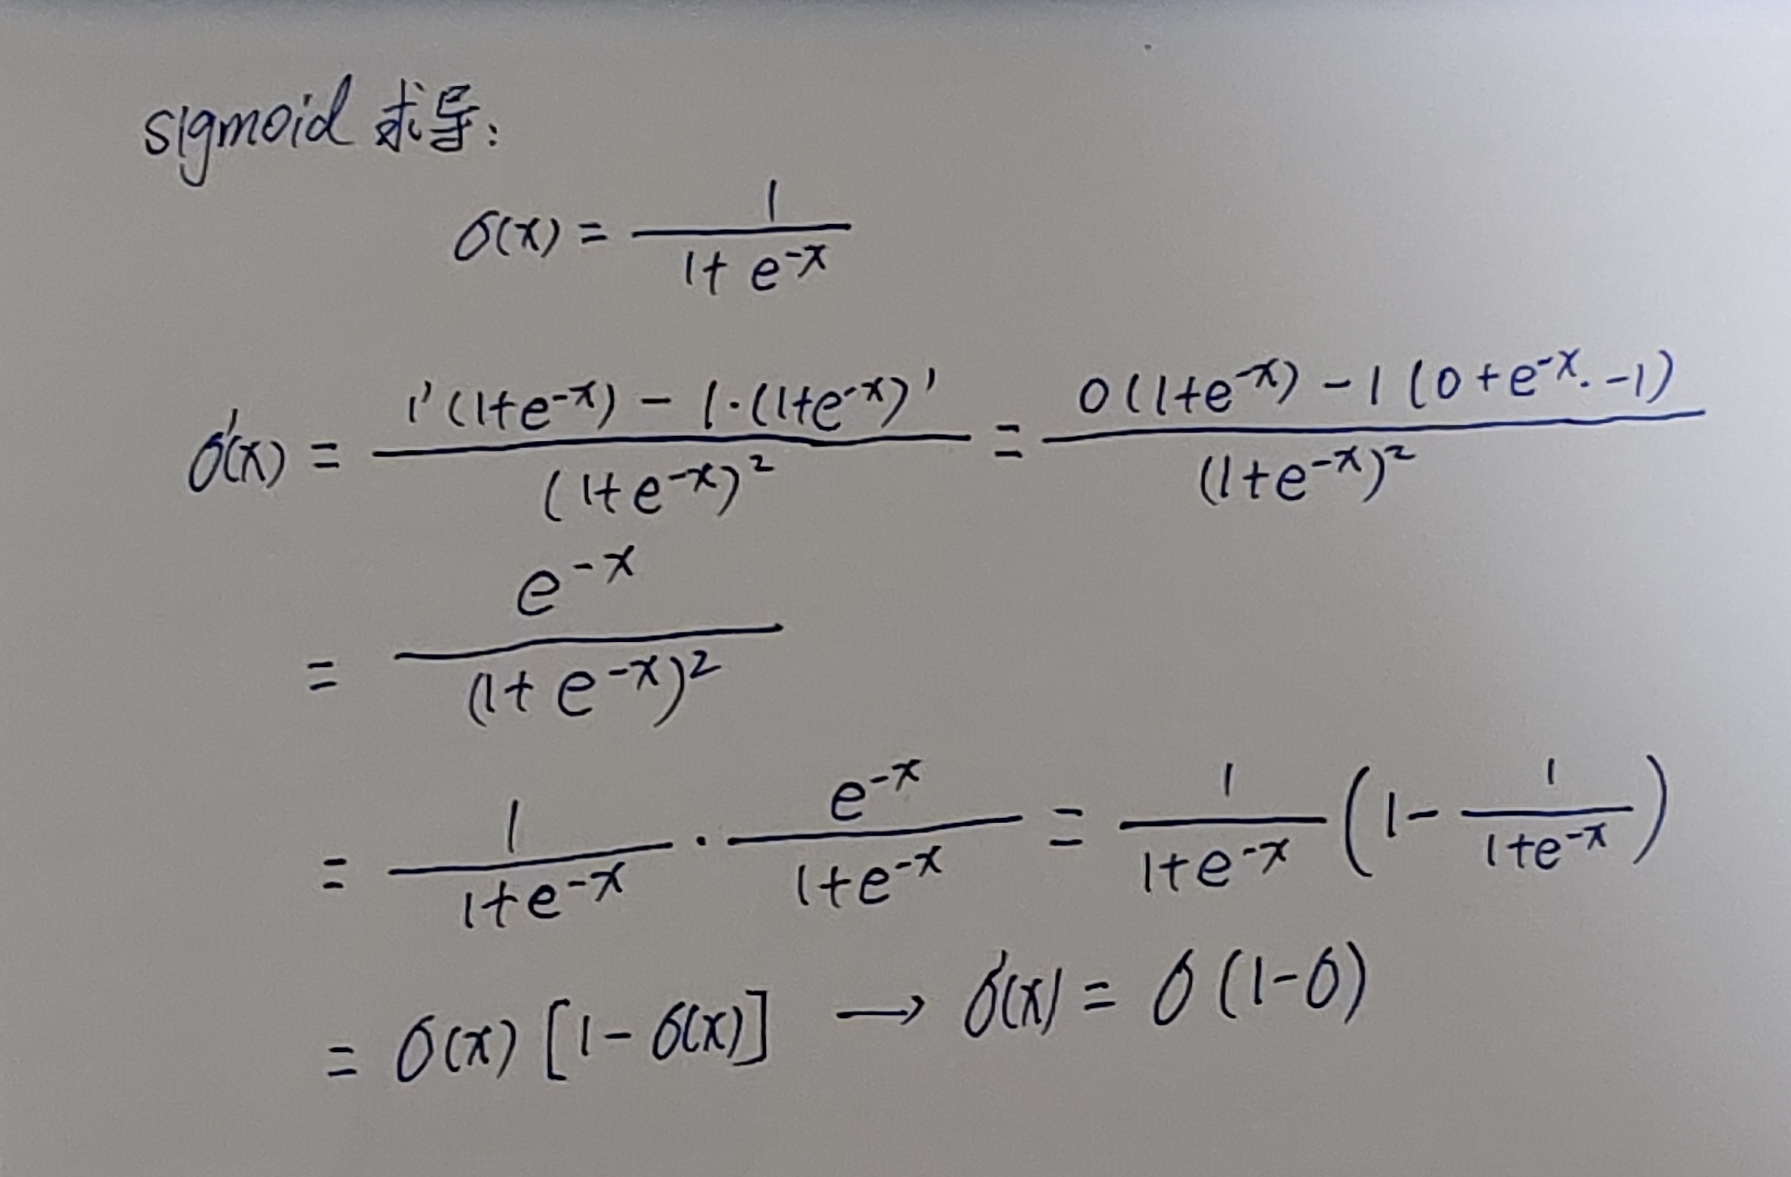 sigmoid 求导:
σ(x) = \frac{1}{1+e^{-x}}
σ'(x) = \frac{1'(1+e^{-x}) - 1·(1+e^{-x})'}{(1+e^{-x})^2} = \frac{0(1+e^{-x}) - 1(0+e^{-x}·-1)}{(1+e^{-x})^2}
= \frac{e^{-x}}{(1+e^{-x})^2}
= \frac{1}{1+e^{-x}} · \frac{e^{-x}}{1+e^{-x}} = \frac{1}{1+e^{-x}} (1 - \frac{1}{1+e^{-x}})
= σ(x) [1 - σ(x)] → σ'(x) = σ(1-σ)